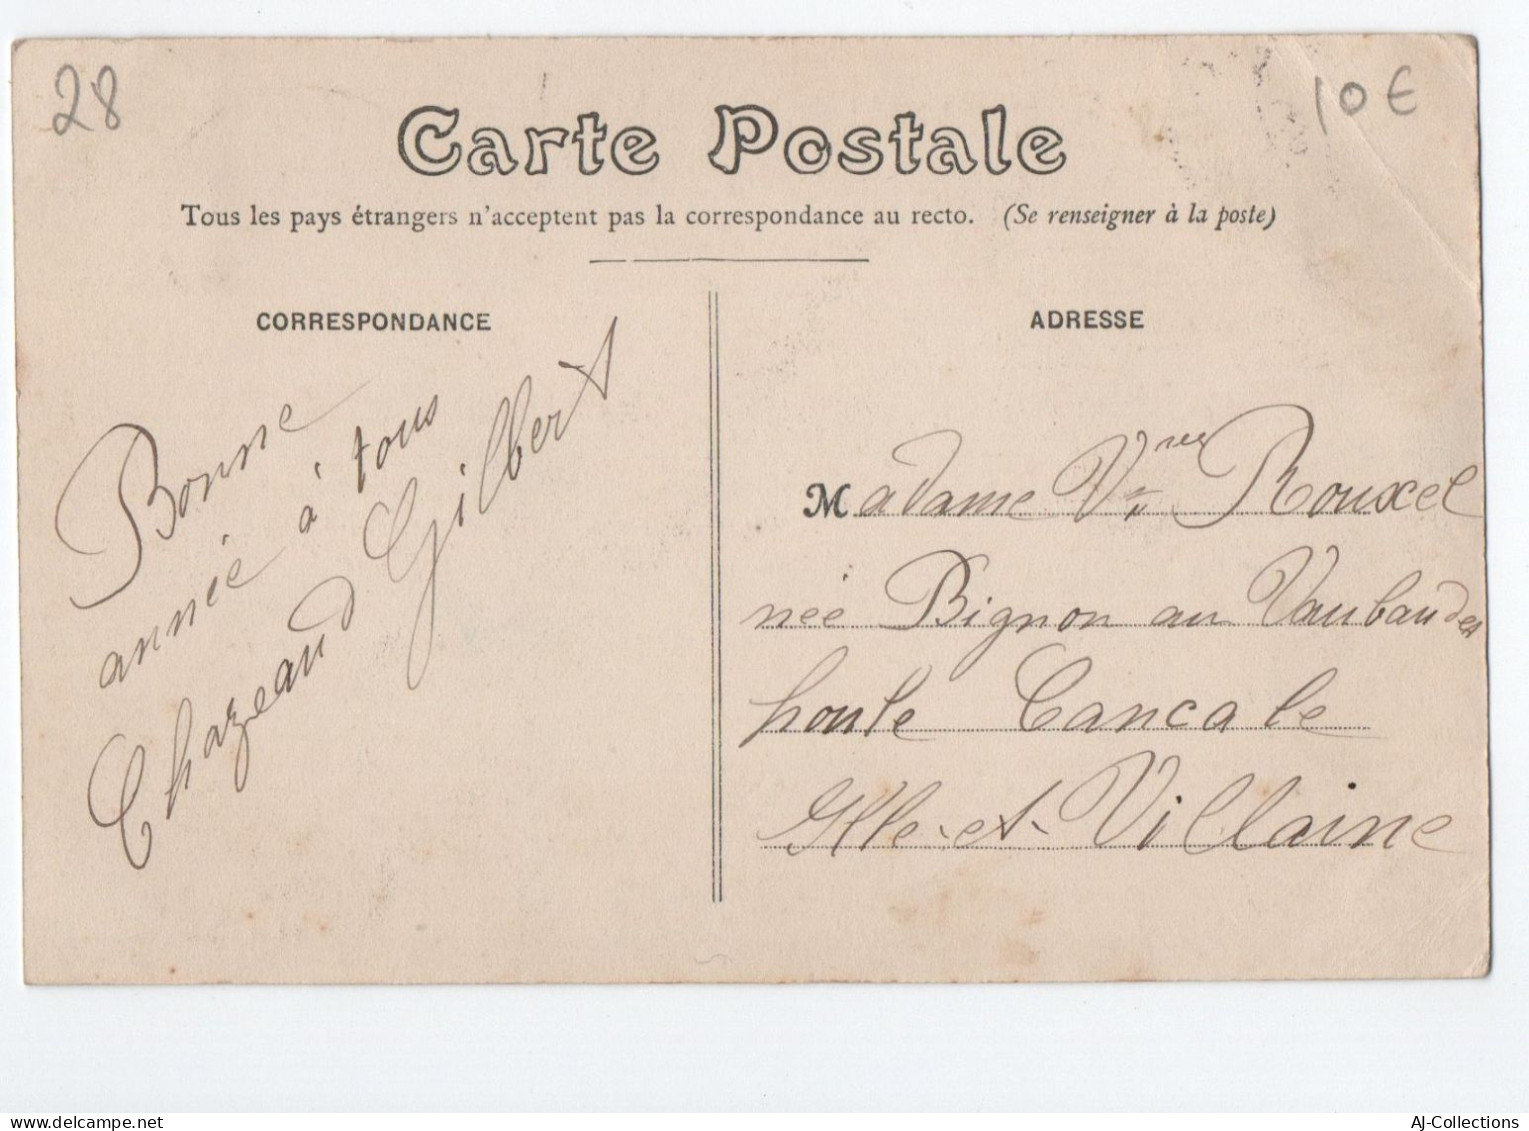 28
10 €
Carte Postale
Tous les pays étrangers n'acceptent pas la correspondance au recto. (Se renseigner à la poste)
CORRESPONDANCE
Bonne
année à tous
Chazeaud Gilbert
ADRESSE
Madame Vve Rouxel
née Bignon au Vaubaudes
houle Cancale
Ille-et-Villaine
delcampe.net
AJ-Collections